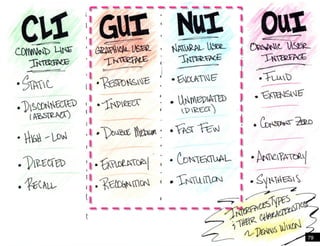 CLI
COMMAND LINE
INTERFACE
• STATIC
• DISCONNECTED
(ABSTRACT)
• HIGH - LOW
• DIRECTED
• RECALL
GUI
GRAPHICAL USER
INTERFACE
• RESPONSIVE
• INDIRECT
• DOUBLE MEDIUM
• EXPLORATORY
• RECOGNITION
NUI
NATURAL USER
INTERFACE
• EVOCATIVE
• UNMEDIATED
(DIRECT)
• FAST FEW
• CONTEXTUAL
• INTUITION
OUI
ORGANIC USER
INTERFACE
• FLUID
• EXTENSIVE
• CONSTANT ZERO
• ANTICIPATORY
• SYNTHESIS
INTERFACES TYPES
& THEIR CHARACTERISTICS
~ DENNIS WIXON
79